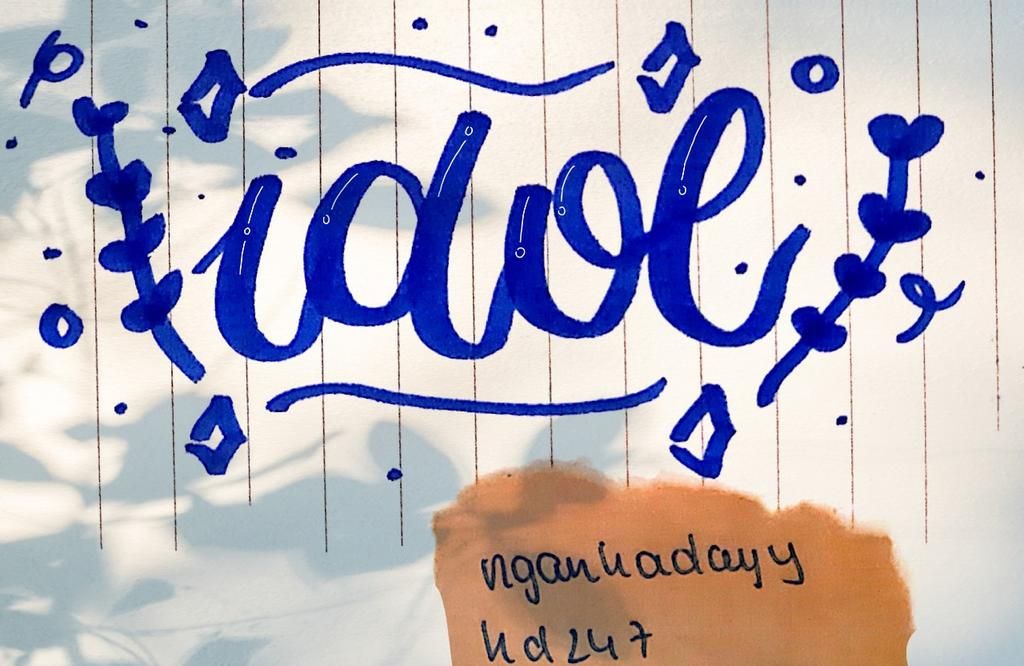 idol
ngankadayy
kd247